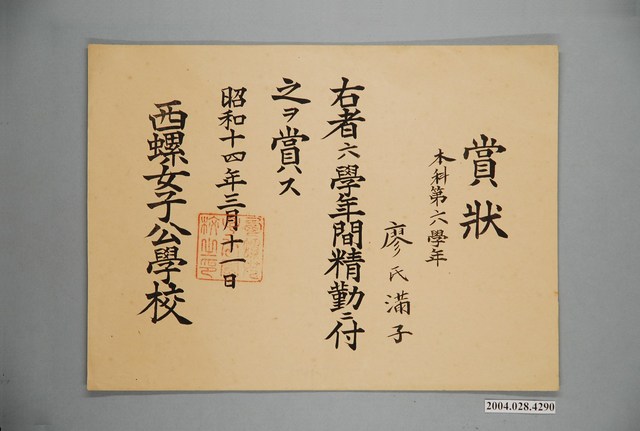 賞狀
本科第六學年
廖氏滿子
右者六學年間精勤ニ付
之ヲ賞ス
昭和十四年三月十一日
西螺女子公學校
2004.028.4290